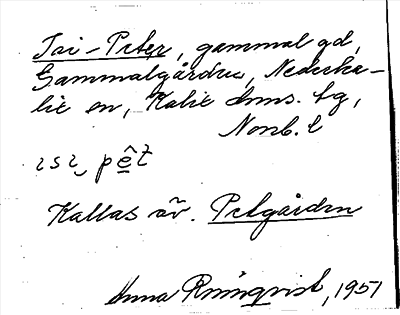 Jai-Peter, gammal gd,
Gammalgården, Nederka-
lix en, Kalix kmns. tg,
Nonb. l
pêt
Kallas äv. Petgården
Anna Rönnqvist, 1951